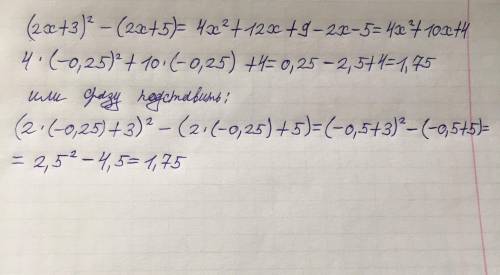 (2x+3)² − (2x+5) = 4x² + 12x + 9 − 2x − 5 = 4x² + 10x + 4
4 · (−0,25)² + 10 · (−0,25) + 4 = 0,25 − 2,5 + 4 = 1,75
или сразу подставить:
(2 · (−0,25) + 3)² − (2 · (−0,25) + 5) = (−0,5+3)² − (−0,5+5) =
= 2,5² − 4,5 = 1,75